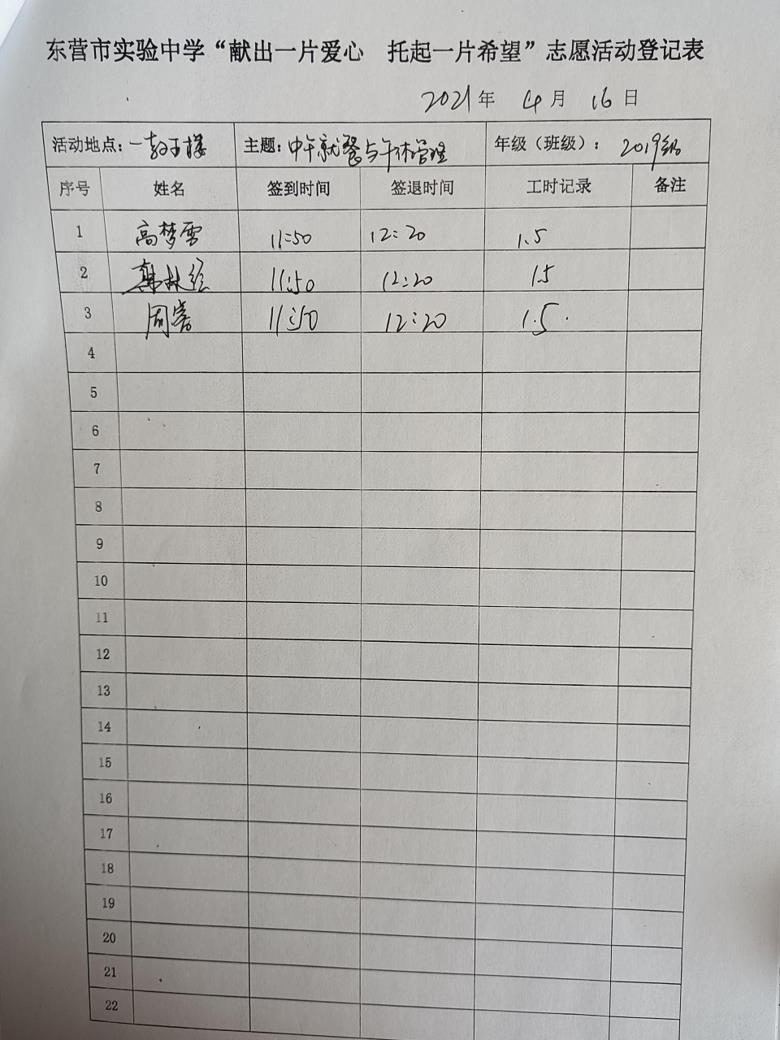 东营市实验中学“献出一片爱心 托起一片希望”志愿活动登记表
2021年 4月 16日
活动地点: 一教于楼 主题: 中午就餐与午休管理 年级（班级）: 2019级
序号 姓名 签到时间 签退时间 工时记录 备注
1 高梦雪 11:50 12:20 1.5
2 林 11:50 12:20 1.5
3 周 11:50 12:20 1.5.
4
5
6
7
8
9
10
11
12
13
14
15
16
17
18
19
20
21
22